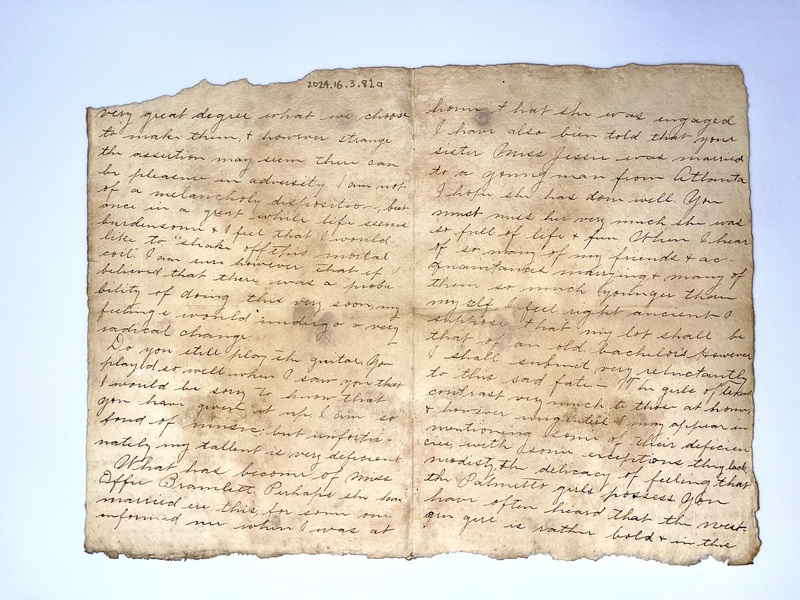 2024.16.3.81a
very great degree what we choose
to make them, & however strange
the assertion may seem there can
be pleasure in adversity. I am not
of a melancholy disposition, but
once in a great while life seems
burdensome & I feel that I would
like to "shake off this mortal
coil. I am sure however that if I
believed that there was a proba-
bility of doing this very soon, my
feelings would undergo a very
radical change
Do you still play the guitar. You
played so well when I saw you that
I would be sorry to know that
you have given it up. I am so
fond of music, but unfortu-
nately my tallent is very deficient
What has become of Miss
Effie Bramlett. Perhaps she has
married ere this, for some one
informed me when I was at
home that she was engaged
I have also been told that your
sister Miss Jessie was married
to a young man from Atlanta
I hope she has done well. You
must miss her very much she was
so full of life & fun. When I hear
of so many of my friends & ac-
quaintances marrying, & many of
them so much younger than
myself I feel right ancient I
suppose that my lot shall be
that of an old bachelor. However
I shall submit very reluctantly
to this sad fate— The girls of Texas
contrast very much to those at home,
& however ungallant I may appear in
mentioning some of their deficien
cies, with some exceptions they lack
modesty, the delicacy of feeling that
the Palmetto girls possess. You
have often heard that the west-
ern girl is rather bold & in this